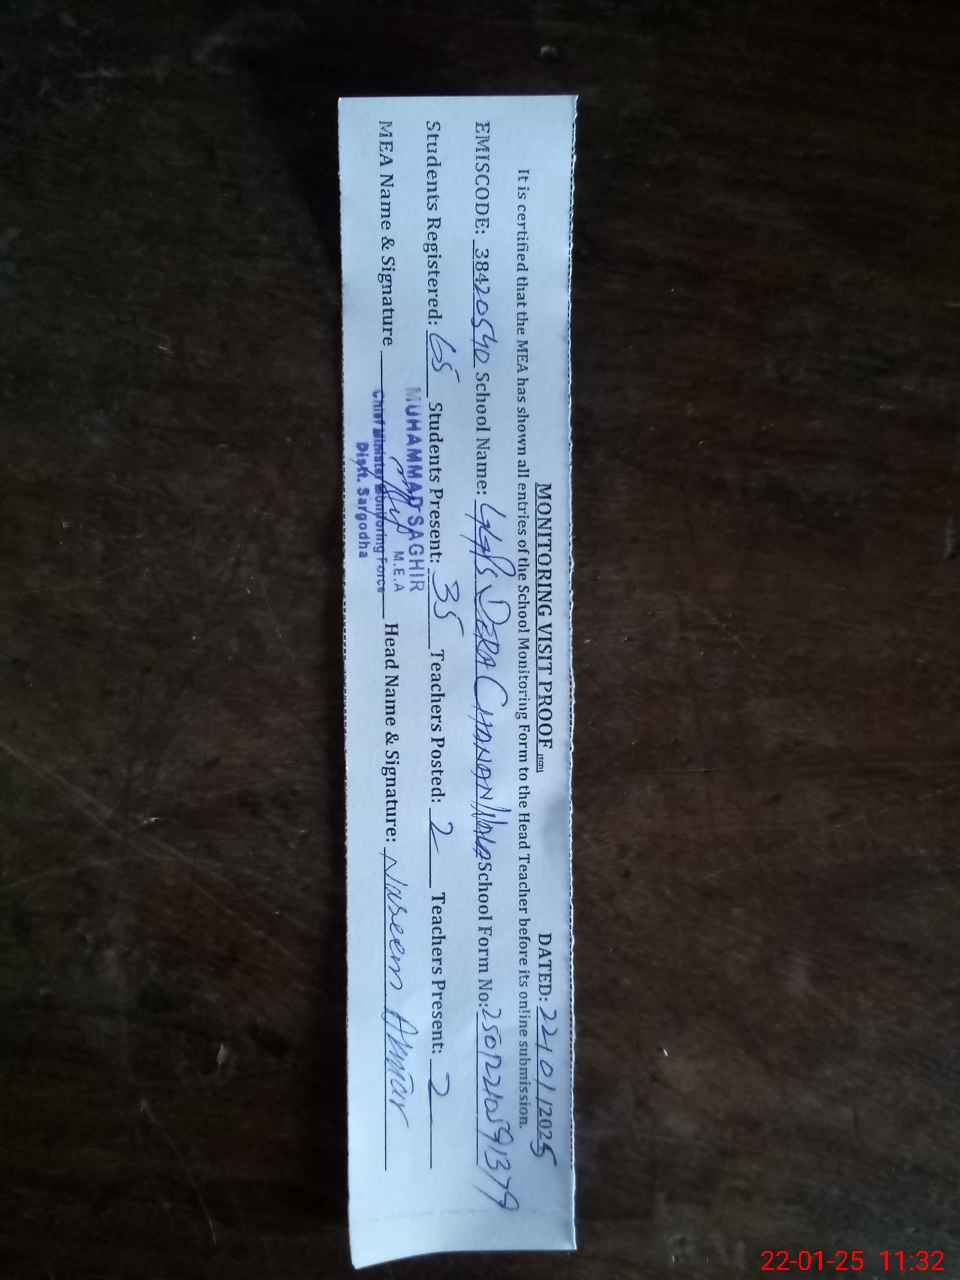 MONITORING VISIT PROOF DATED: 22/01/2025
It is certified that the MEA has shown all entries of the School Monitoring Form to the Head Teacher before its online submission.
EMISCODE: 38420540 School Name: GGPS DERA CHANAN Wala School Form No: 25012210591379
Students Registered: 65 Students Present: 35 Teachers Posted: 2 Teachers Present: 2
MEA Name & Signature Head Name & Signature: Naseem
MUHAMMAD SAGHIR
M.E.A
Chief Minister Monitoring Force
Distt. Sargodha
22-01-25 11:32